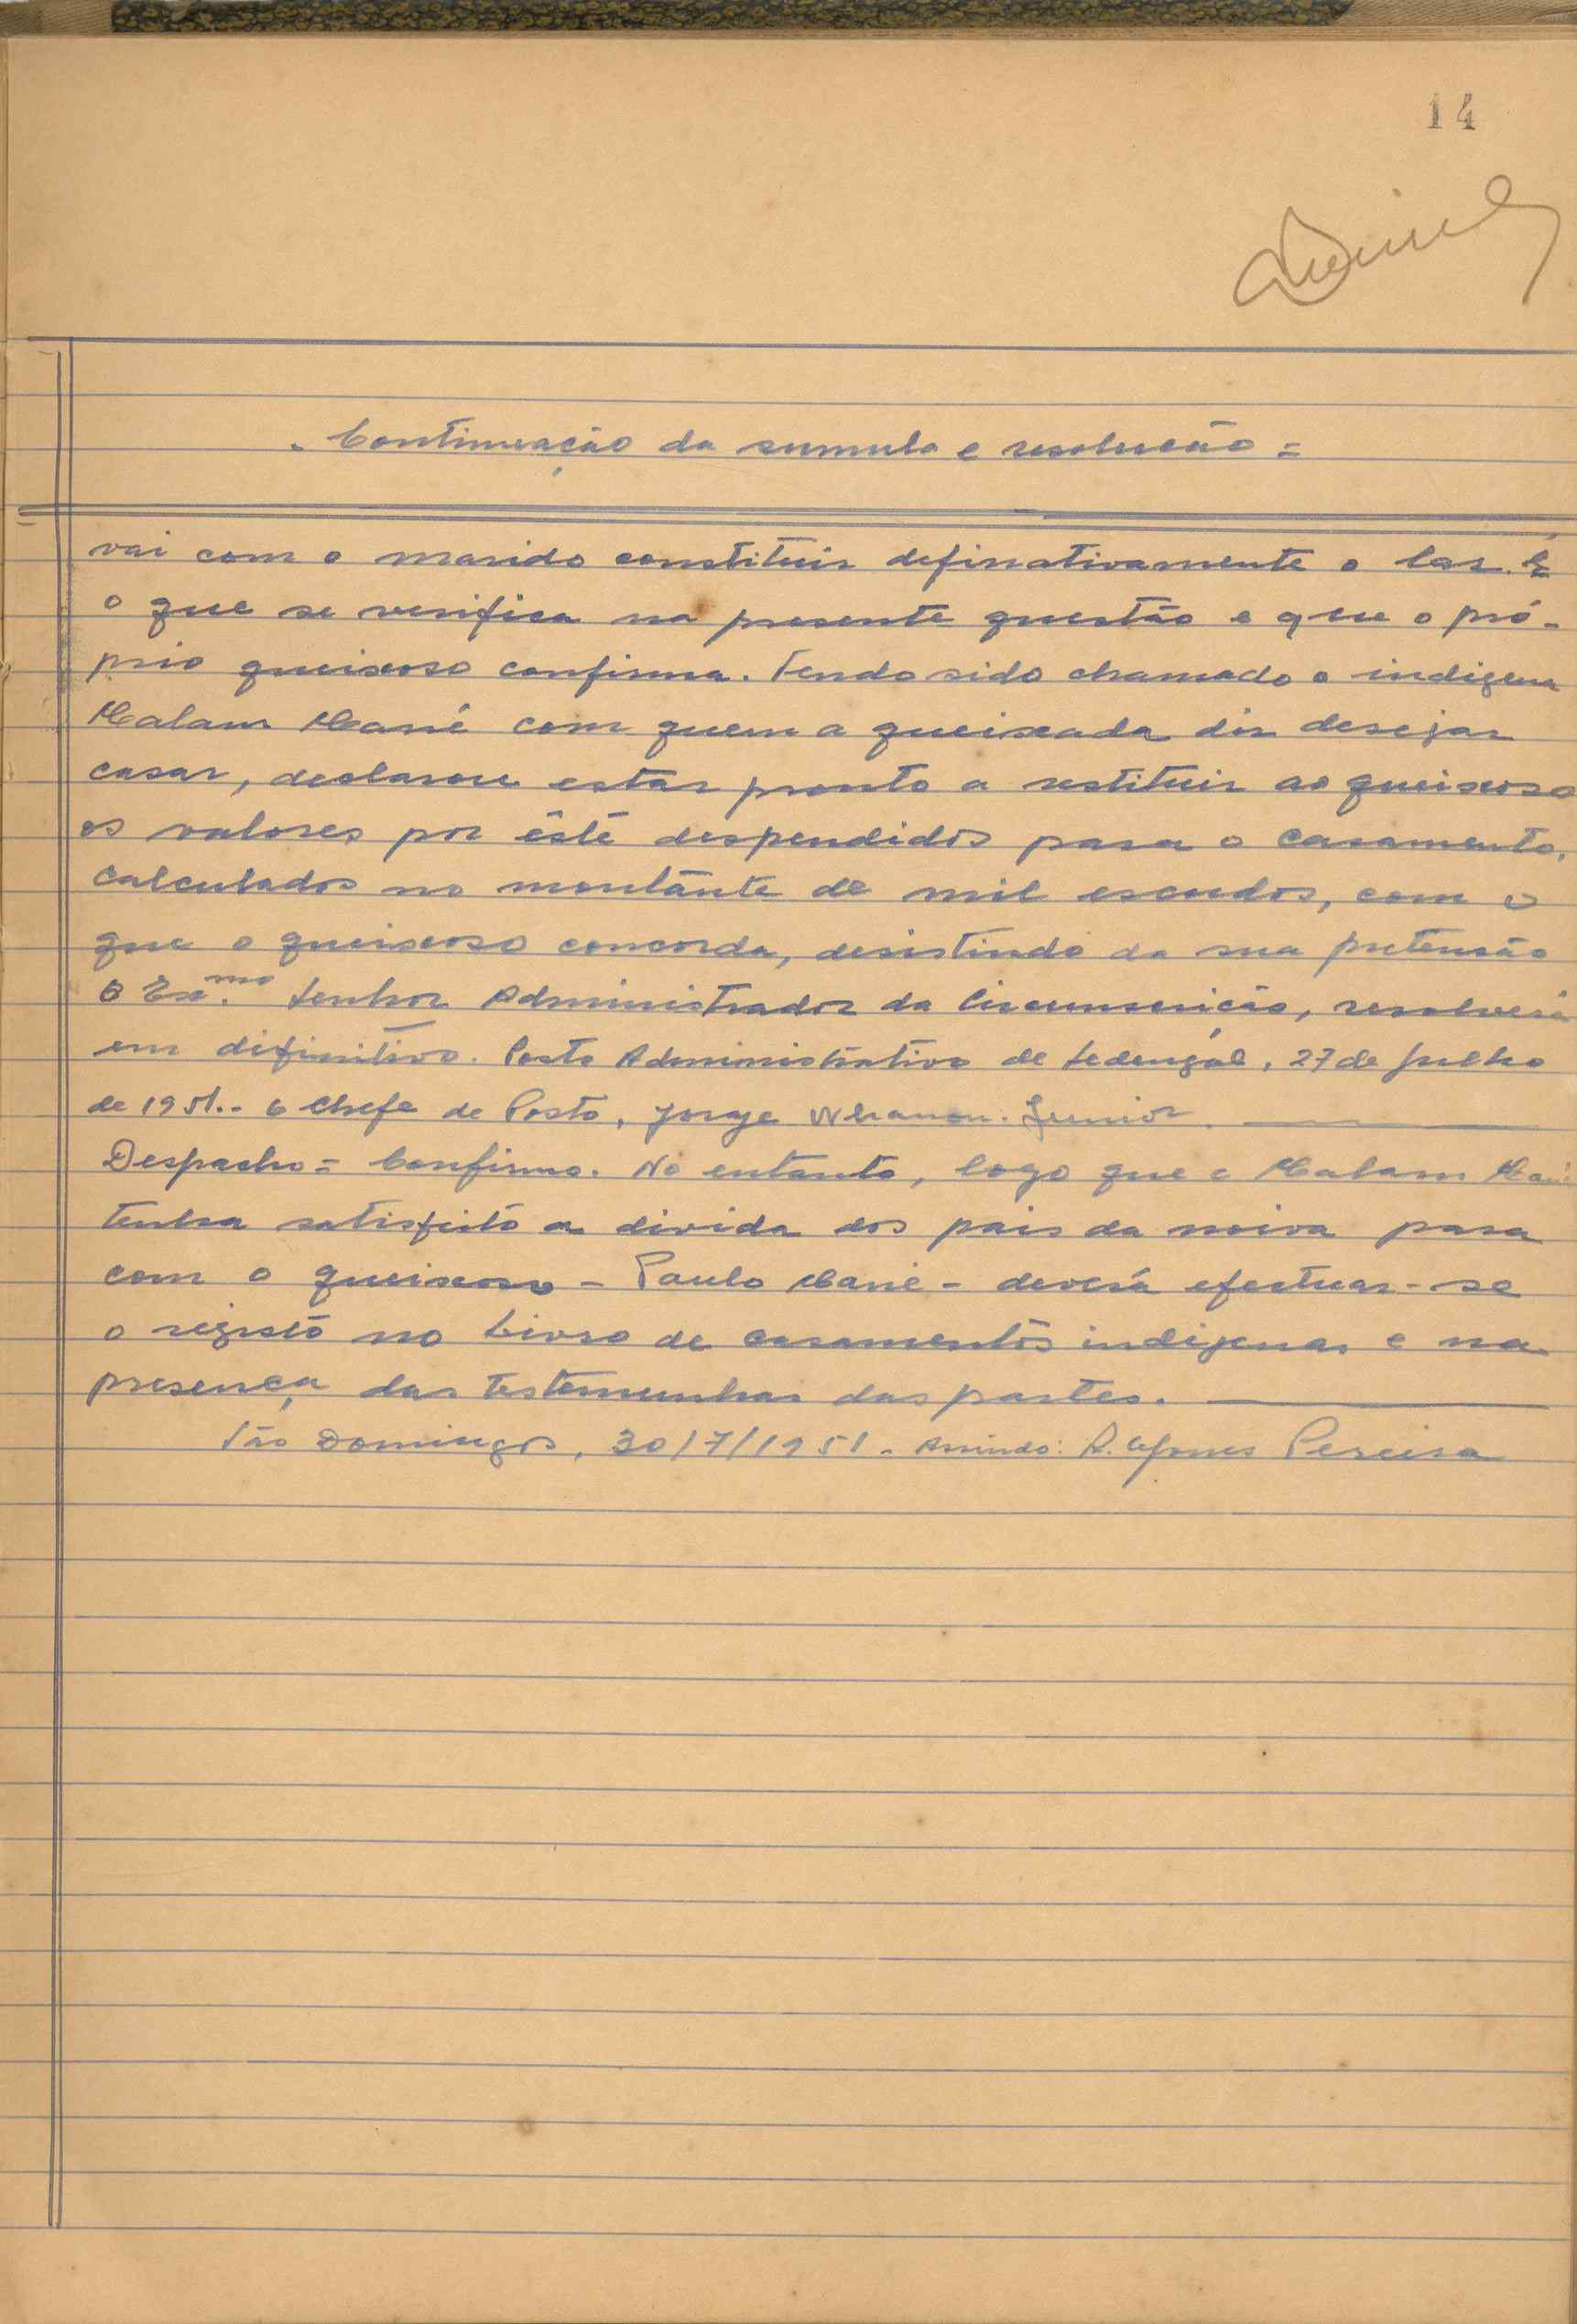 14
- Continuação da sumula e resolução =
vai com o marido constituir definativamente o lar. É
o que se verifica na presente questão e que o pró-
prio queixoso confirma. Tendo sido chamado o indigena
Malam Mané com quem a queixada diz desejar
casar, declarou estar pronto a restituir ao queixoso
os valores por êste despendidos para o casamento,
calculados no montante de mil escudos, com o
que o queixoso concorda, desistindo da sua pretensão
O Exmo. Senhor Administrador da Circunscrição, resolverá
em difinitivo. Posto Administrativo de Sedengál, 27 de Julho
de 1951.- O Chefe de Posto, Jorge Junior.
Despacho = Confirmo. No entanto, logo que o Malam Mané
tenha satisfeito a divida dos pais da noiva para
com o queixoso - Paulo Mané - deverá efectuar-se
o registo no Livro de casamentos indigenas e na
presença das testemunhas das partes.
São Domingos, 30/7/1951. Assinado: A. Gomes Pereira